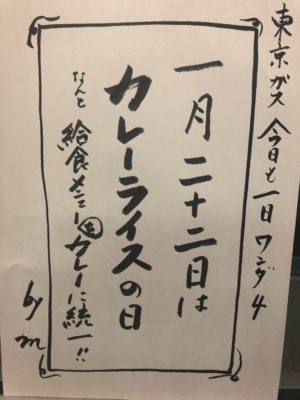 東京ガス 今日も一日ワンダ4
一月二十二日は
カレーライスの日
なんと給食メニューもカレーに統一!!
by m